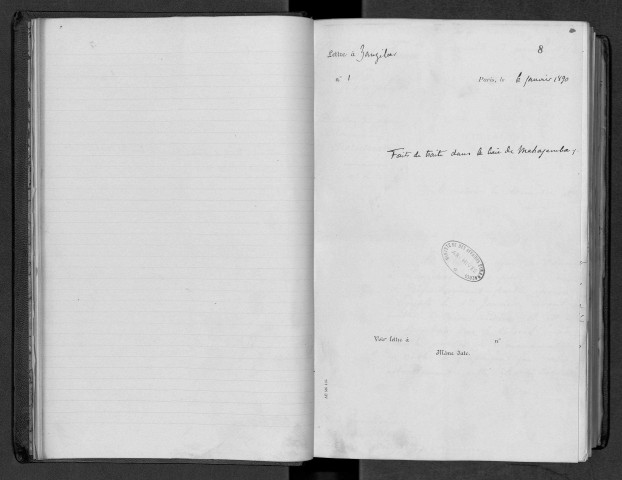 8
Lettre à Zanzibar
n° 1 Paris, le 6 Janvier 1890
Faits de traite dans la baie de Mahajamba.
Voir lettre à n°
Même date.